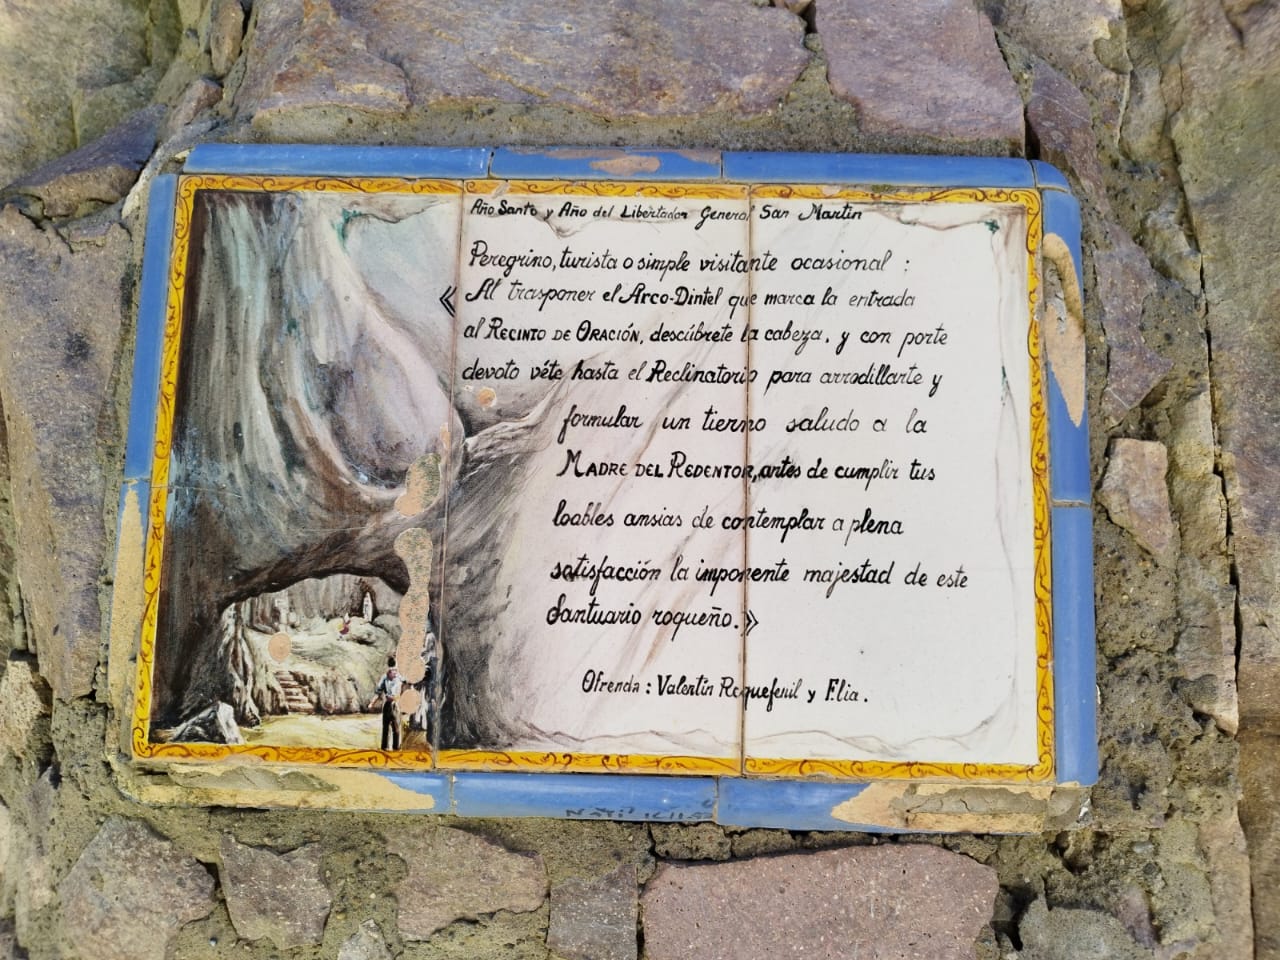 Año Santo y Año del Libertador General San Martín
Peregrino, turista o simple visitante ocasional :
« Al trasponer el Arco-Dintel que marca la entrada
al RECINTO DE ORACIÓN, descúbrete la cabeza, y con porte
devoto véte hasta el Reclinatorio para arrodillarte y
formular un tierno saludo a la
MADRE DEL REDENTOR, antes de cumplir tus
loables ansias de contemplar a plena
satisfacción la imponente majestad de este
Santuario roqueño.»
Ofrenda : Valentín Roquefenil y Flia.